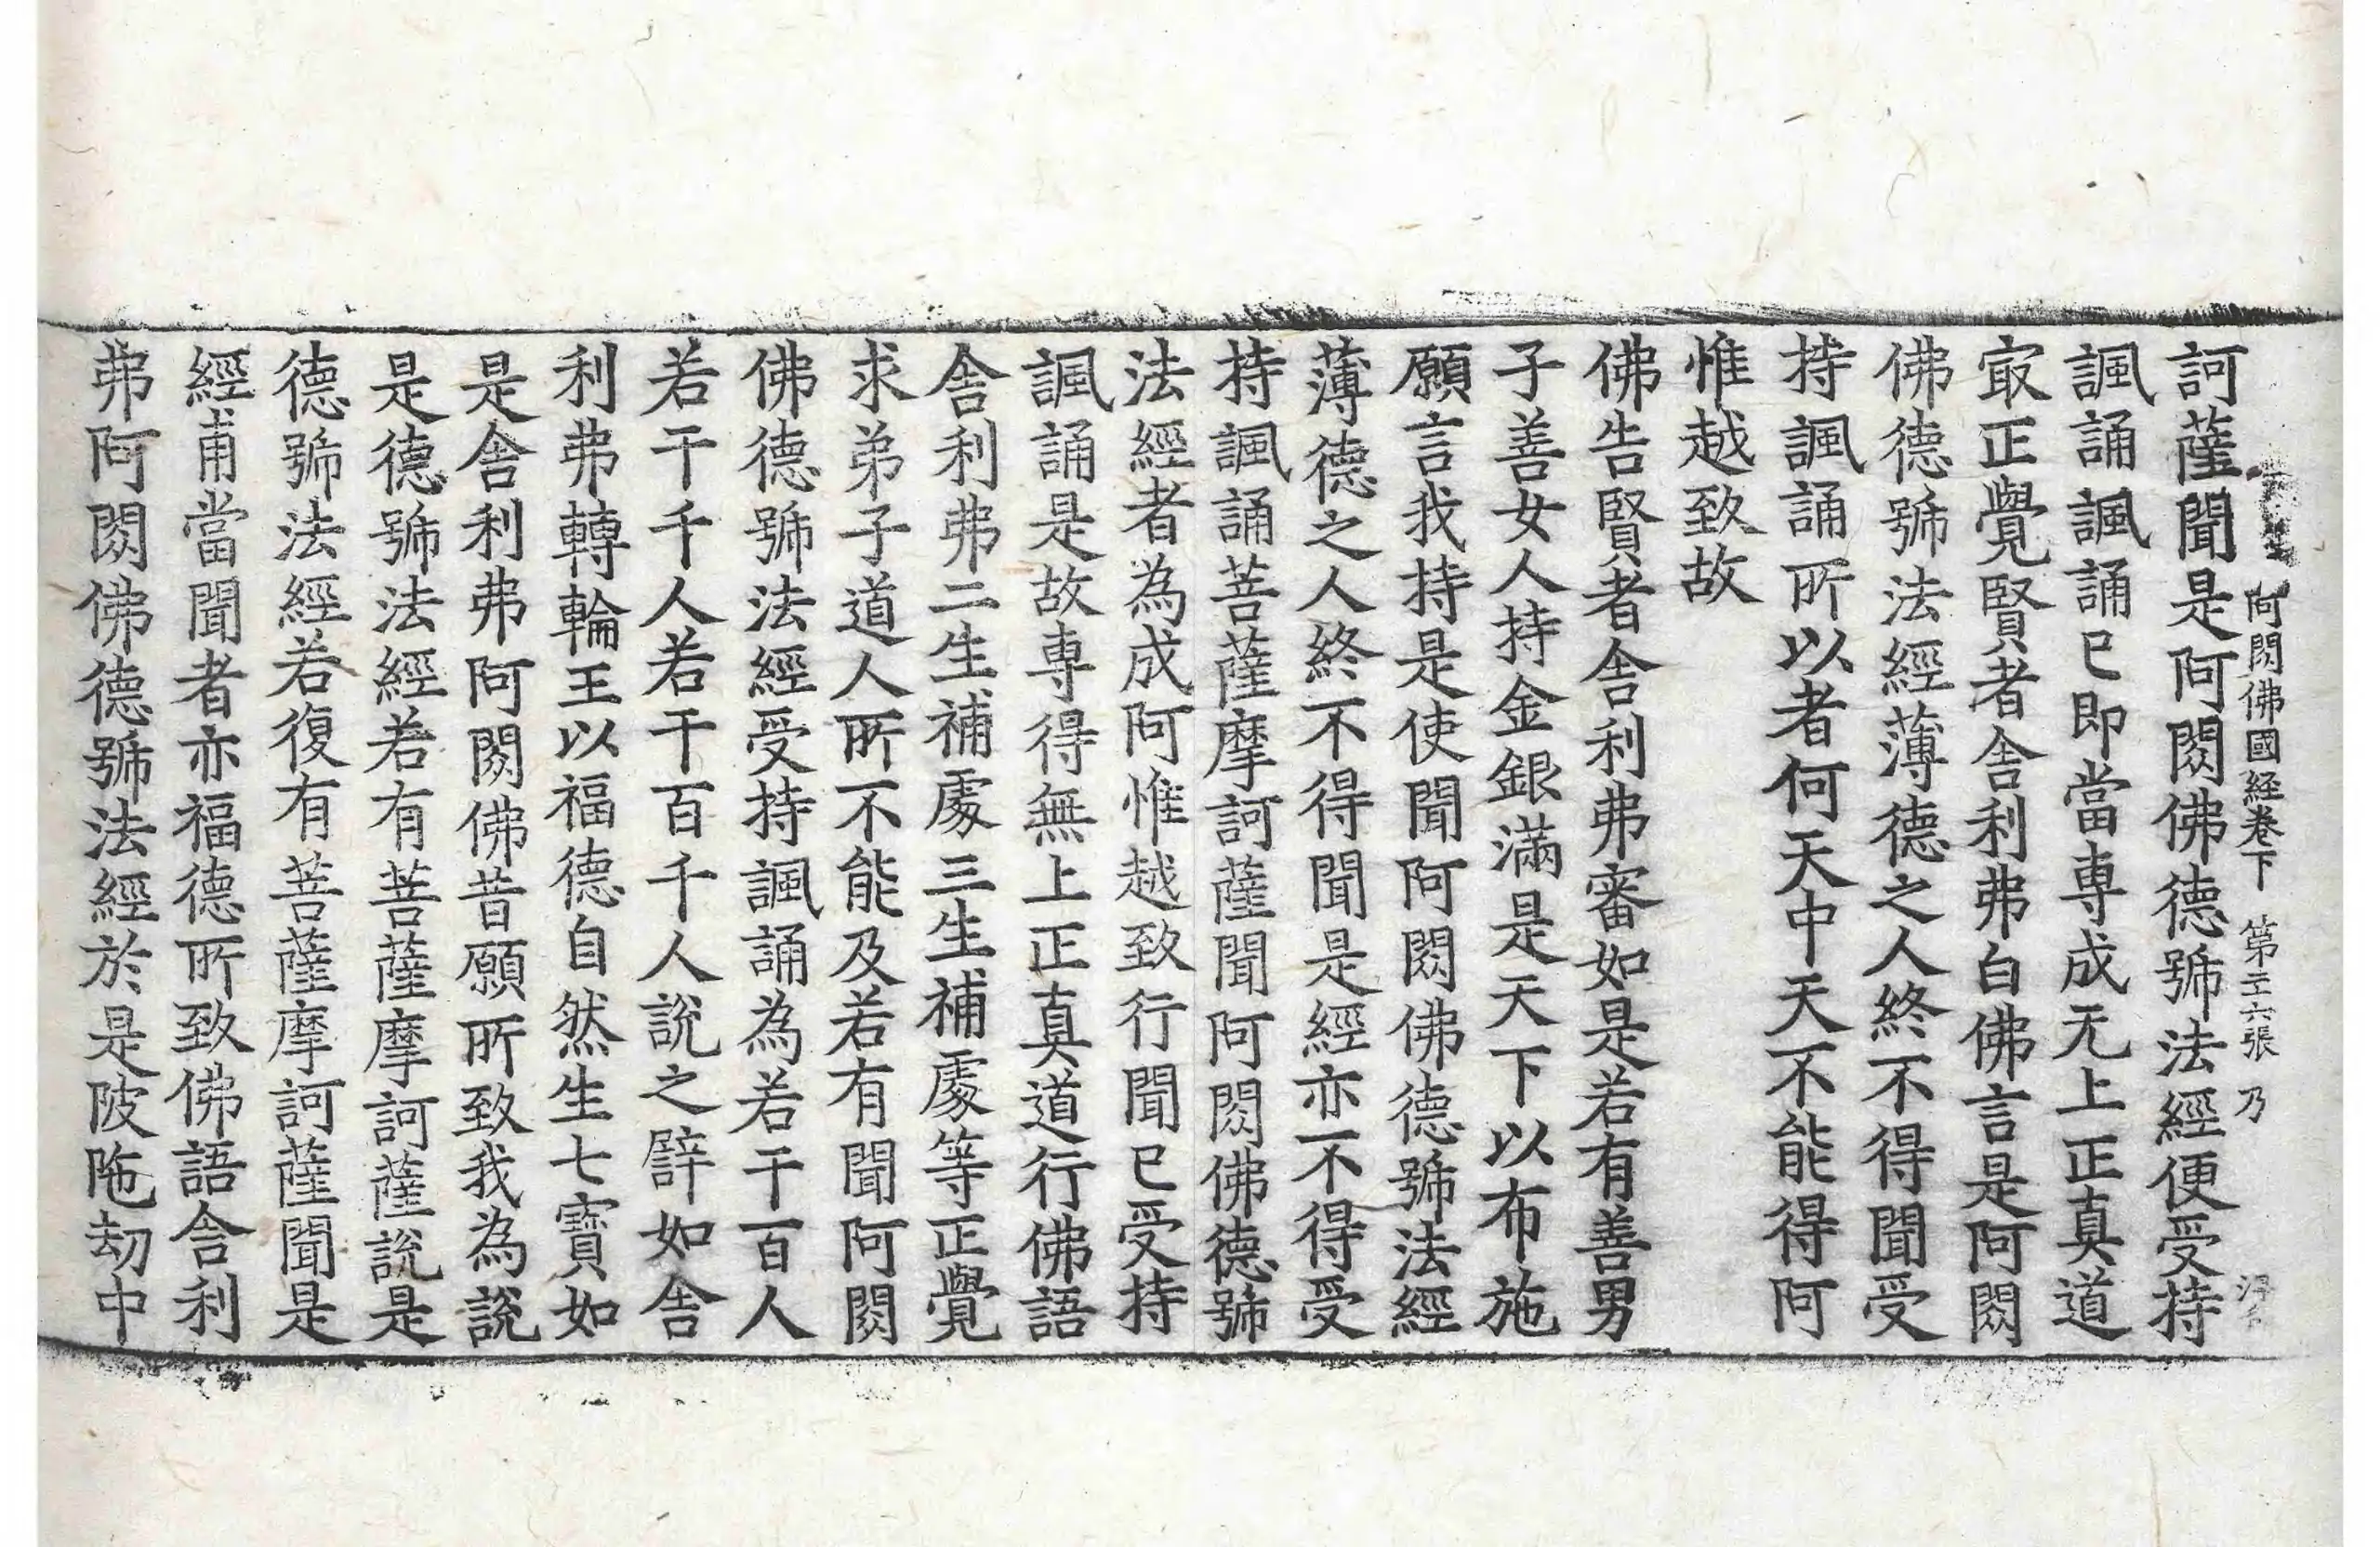 阿閦佛國経卷下　第二六張　乃
訶薩聞是阿閦佛德號法經便受持
諷誦諷誦已即當專成无上正真道
㝡正覺賢者舎利弗白佛言是阿閦
佛德號法經薄德之人終不得聞受
持諷誦所以者何天中天不能得阿
惟越致故
佛告賢者舎利弗審如是若有善男
子善女人持金銀滿是天下以布施
願言我持是使聞阿閦佛德號法經
薄德之人終不得聞是經亦不得受
持諷誦菩薩摩訶薩聞阿閦佛德號
法經者為成阿惟越致行聞已受持
諷誦是故專得無上正真道行佛語
舎利弗二生補處三生補處等正覺
求弟子道人所不能及若有聞阿閦
佛德號法經受持諷誦為若干百人
若干千人若干百千人說之譬如舎
利弗轉輪王以福德自然生七寶如
是舎利弗阿閦佛昔願所致我為說
是德號法經若有菩薩摩訶薩說是
德號法經若復有菩薩摩訶薩聞是
經甫當聞者亦福德所致佛語舎利
弗阿閦佛德號法經於是陂陁劫中